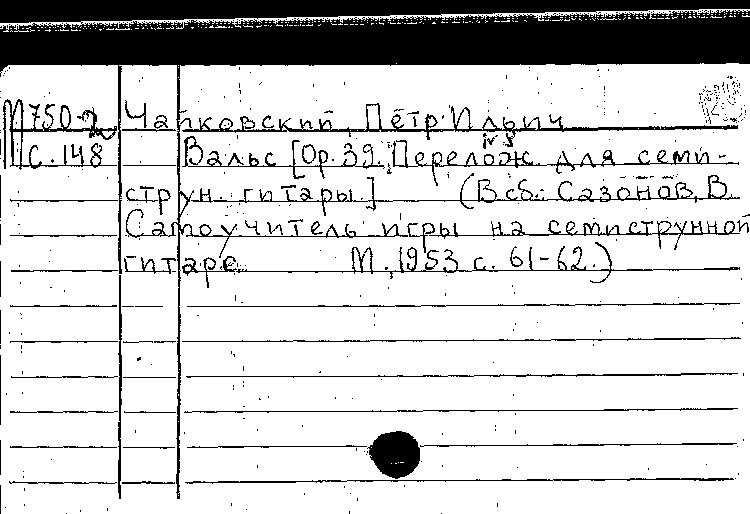 М750-2 Чайковский, Пётр Ильич
С.148 Вальс [Op. 39. № 8 Перелож. для семи-
струн. гитары] (В сб.: Сазонов, В.
Самоучитель игры на семиструнной
гитаре М., 1953 с. 61-62.)